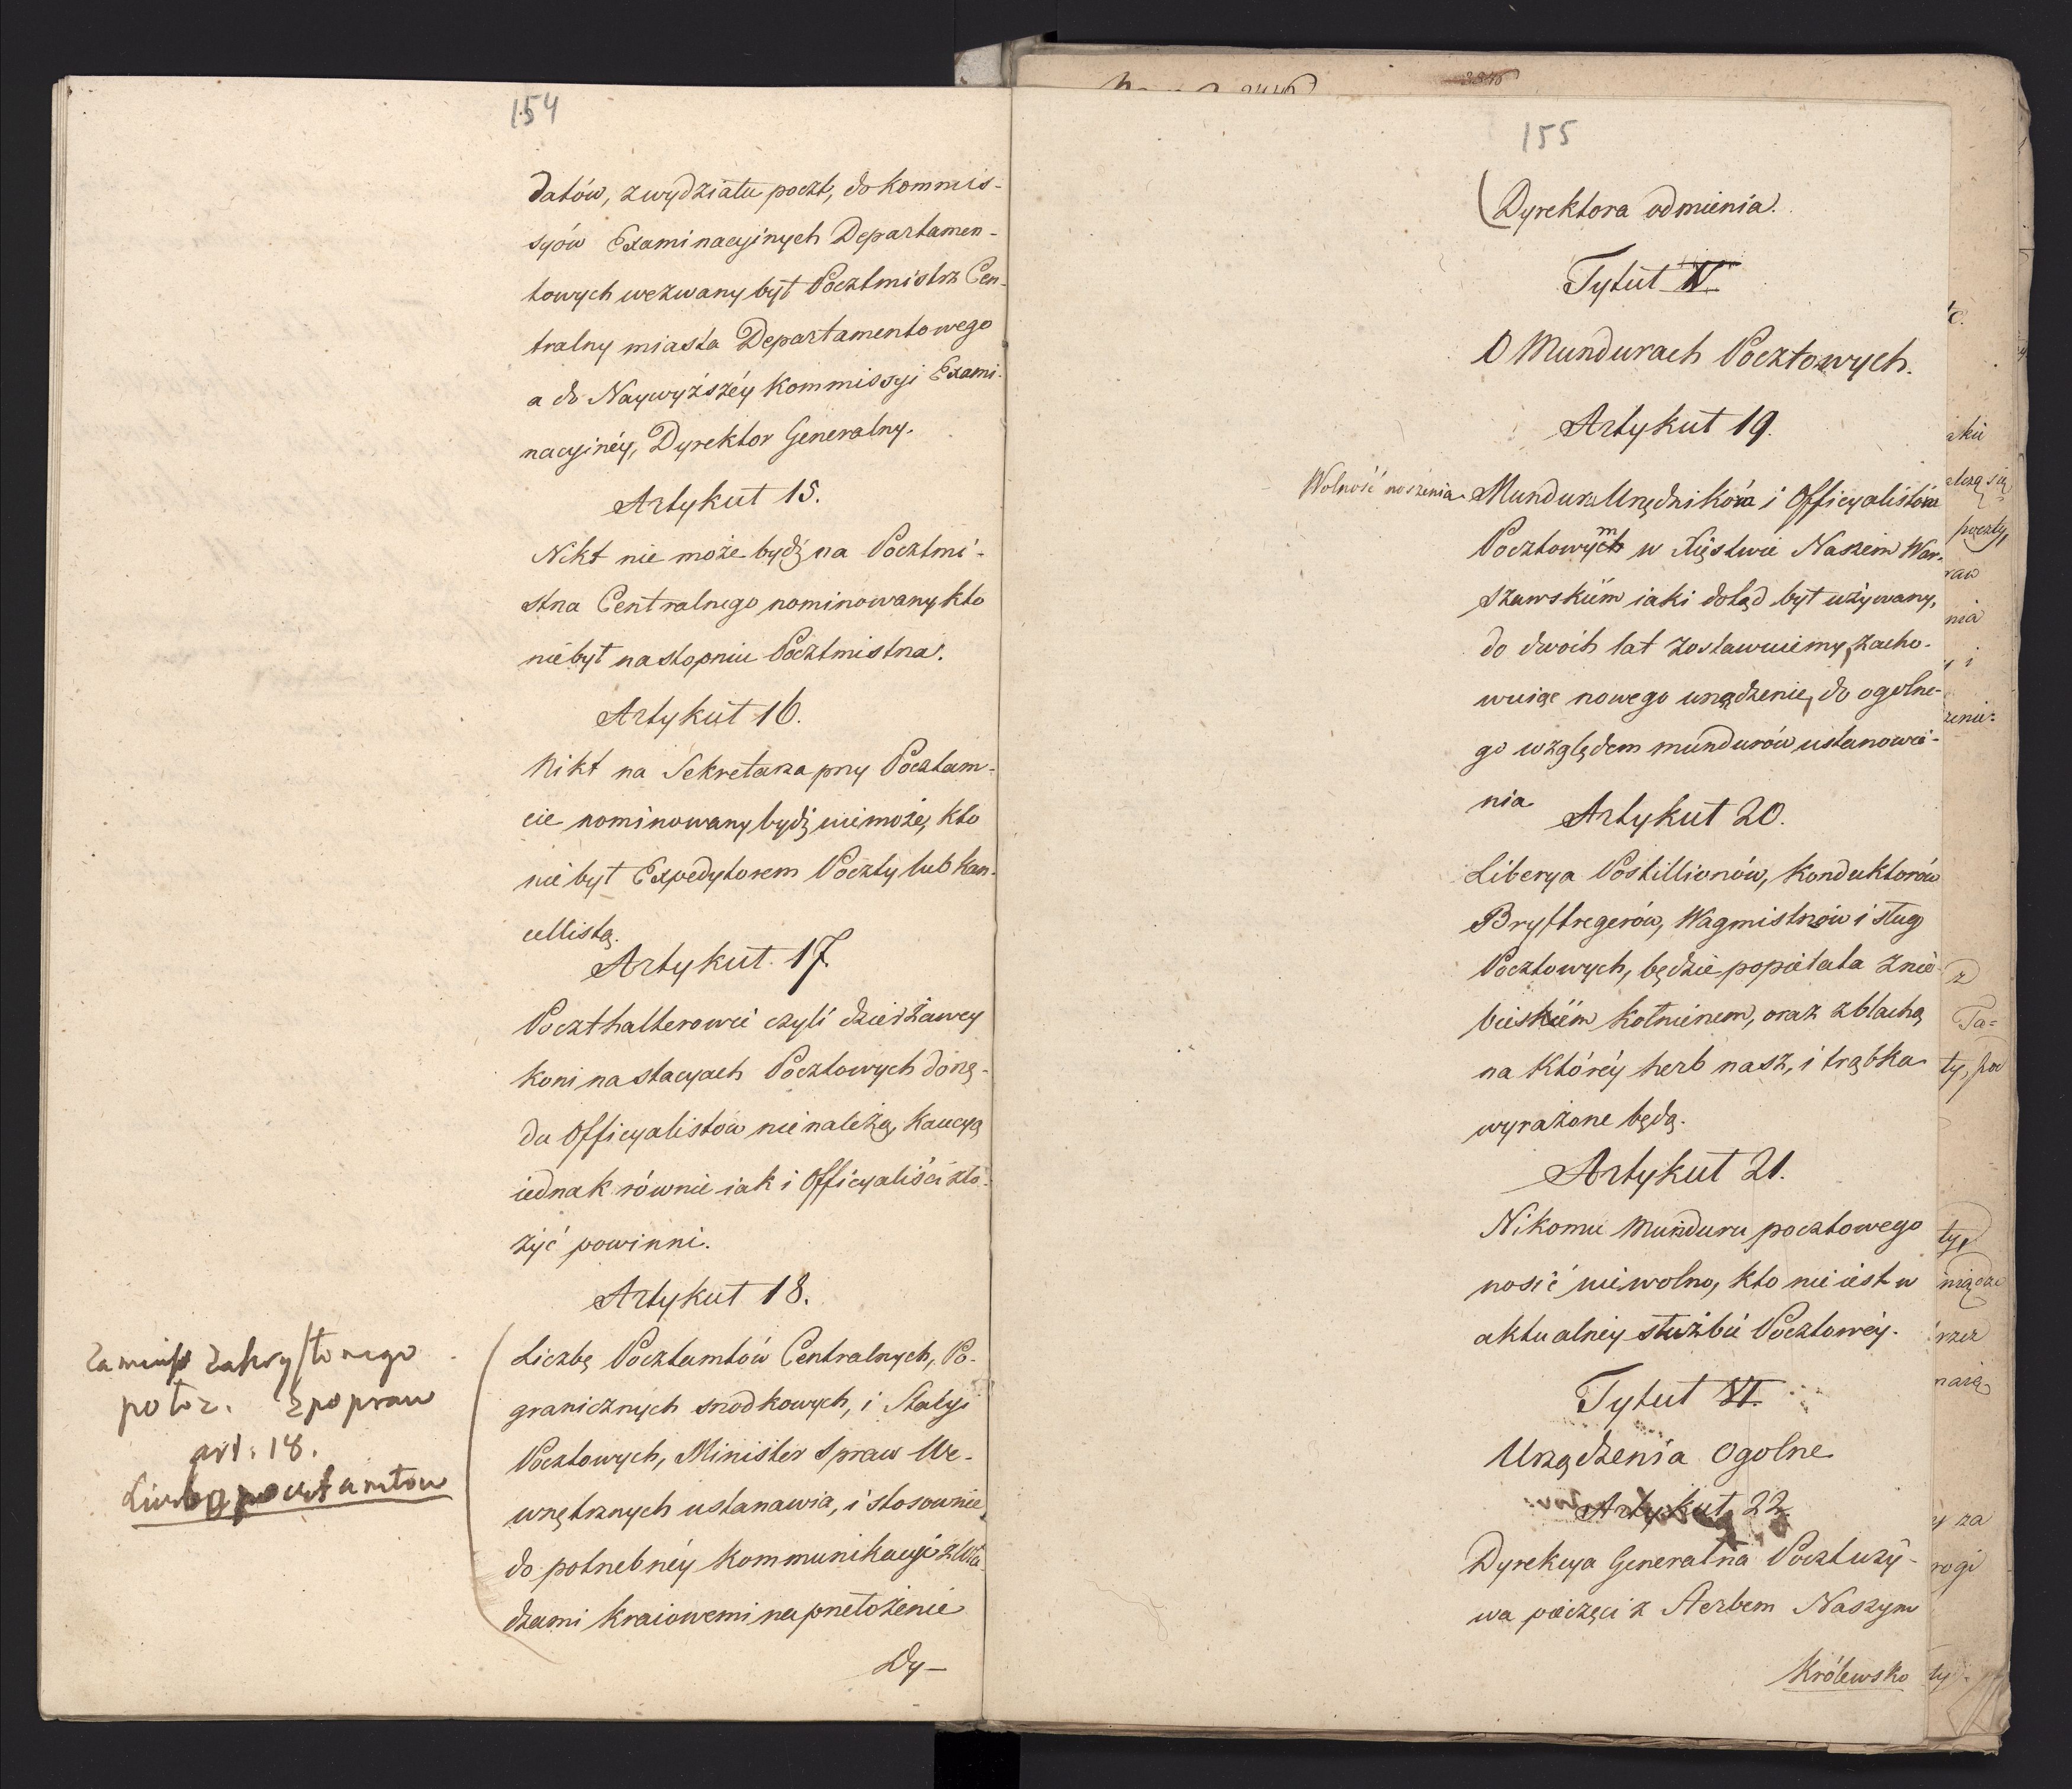 154
datów, z wydziału poczt, do kommis-
syów Examinacyinych Departamen-
towych wezwany był Pocztmistrz Cen-
tralny miasta Departamentowego
a do Naywyższéy Kommissyi Exami-
nacyinéy, Dyrektor Generalny.
Artykuł 15.
Nikt nie może bydź na Pocztmi-
strza Centralnego nominowany kto
niebył na stopniu Pocztmistrza.
Artykuł 16.
Nikt na Sekretarza przy Pocztam-
cie nominowany bydź niemoże, kto
nie był Expedytorem Poczty lub Kan-
cellistą.
Artykuł 17.
Poczthalterowie czyli dzierżawcy
koni na stacyach Pocztowych do rzę-
du Officyalistów nienależą, Kaucyą
iednak równie iak i Officyaliści zło-
żyć powinni.
Artykuł 18.
Liczbę Pocztamtów Centralnych, Po-
granicznych srzodkowych, i Stacyi
Pocztowych, Minister Spraw We-
wnętrznych ustanawia, i stosownie
do potrzebnéy Kommunikacyi z Wła-
dzami kraiowemi na przełożenie
Dy-
zamiast zakryślonego
położ. z popraw
art: 18.
Liczbę pocztamtów
155
Dyrektora odmienia.
Tytuł IV
O Mundurach Pocztowych.
Artykuł 19.
Wolność noszenia
Mundur Urzędników i Officyalistów
Pocztowych w Xięstwie Naszem War-
szawskiém iaki dotąd był używany,
do dwóch lat zostawuiemy, zacho-
wuiąc nowego urządzenie, do ogolne-
go względem mundurów ustanowie-
nia
Artykuł 20.
Liberya Postillionów, Konduktorów
Bryftregerów, Wagmistrzów i sług
Pocztowych, będzie popielata z nie-
bieskiém kołnierzem, oraz z blachą
na któréy herb nasz, i trąbka
wyrażone będą.
Artykuł 21.
Nikomu Munduru pocztowego
nosić niewolno, kto nie iest w
aktualnéy służbie Pocztowéy.
Tytuł VI.
Urządzenia Ogolne
Artykuł 22.
Dyrekcya Generalna Poczt uży-
wa pieczęci z Herbem Naszym
Królewsko